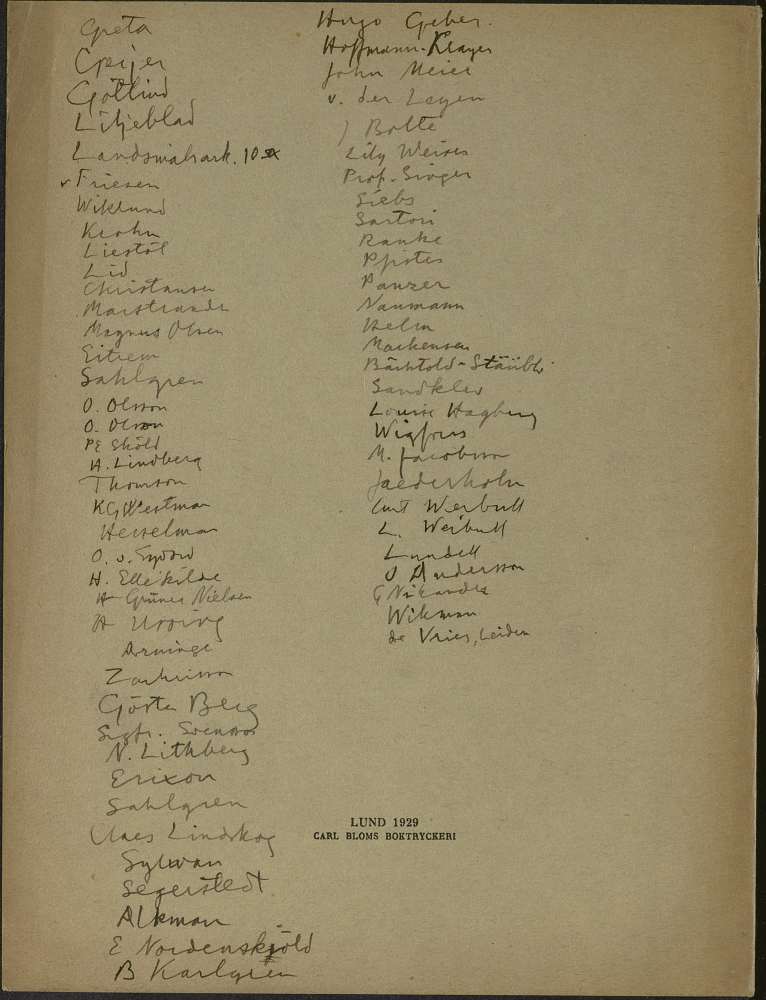 Greta
Geijer
Götlind
Liljeblad
Landsmålsark. 10 ex
v Friesen
Wiklund
Krohn
Liestöl
Lid
Christiansen
Marstrander
Magnus Olsen
Eitrem
Sahlgren
O. Olsson
O. Olson
PE Sköld
H. Lindberg
Thomson
KG Westman
Hesselman
O. v. Sydow
H. Ellekilde
H Grüner Nielsen
H Ussing
Arninge
Zachrisson
Gösta Berg
Sigfr. Svensson
N. Lithberg
Erixon
Sahlgren
Claes Lindskog
Sylwan
Segerstedt
Alkman
E Nordenskjöld
B Karlgren
Hugo Geber.
Hoffmann-Krayer
John Meier
v. der Leyen
J Bolte
Lily Weiser
Prof. Singer
Siebs
Sartori
Ranke
Pfister
Panzer
Naumann
Helm
Mackensen
Bächtold-Stäubli
Sandklev
Louise Hagberg
Wigforss
M. Jacobsson
Jaederholm
Curt Weibull
L. Weibull
Lundell
O Andersson
G Nikander
Wikman
de Vries, Leiden
LUND 1929
CARL BLOMS BOKTRYCKERI